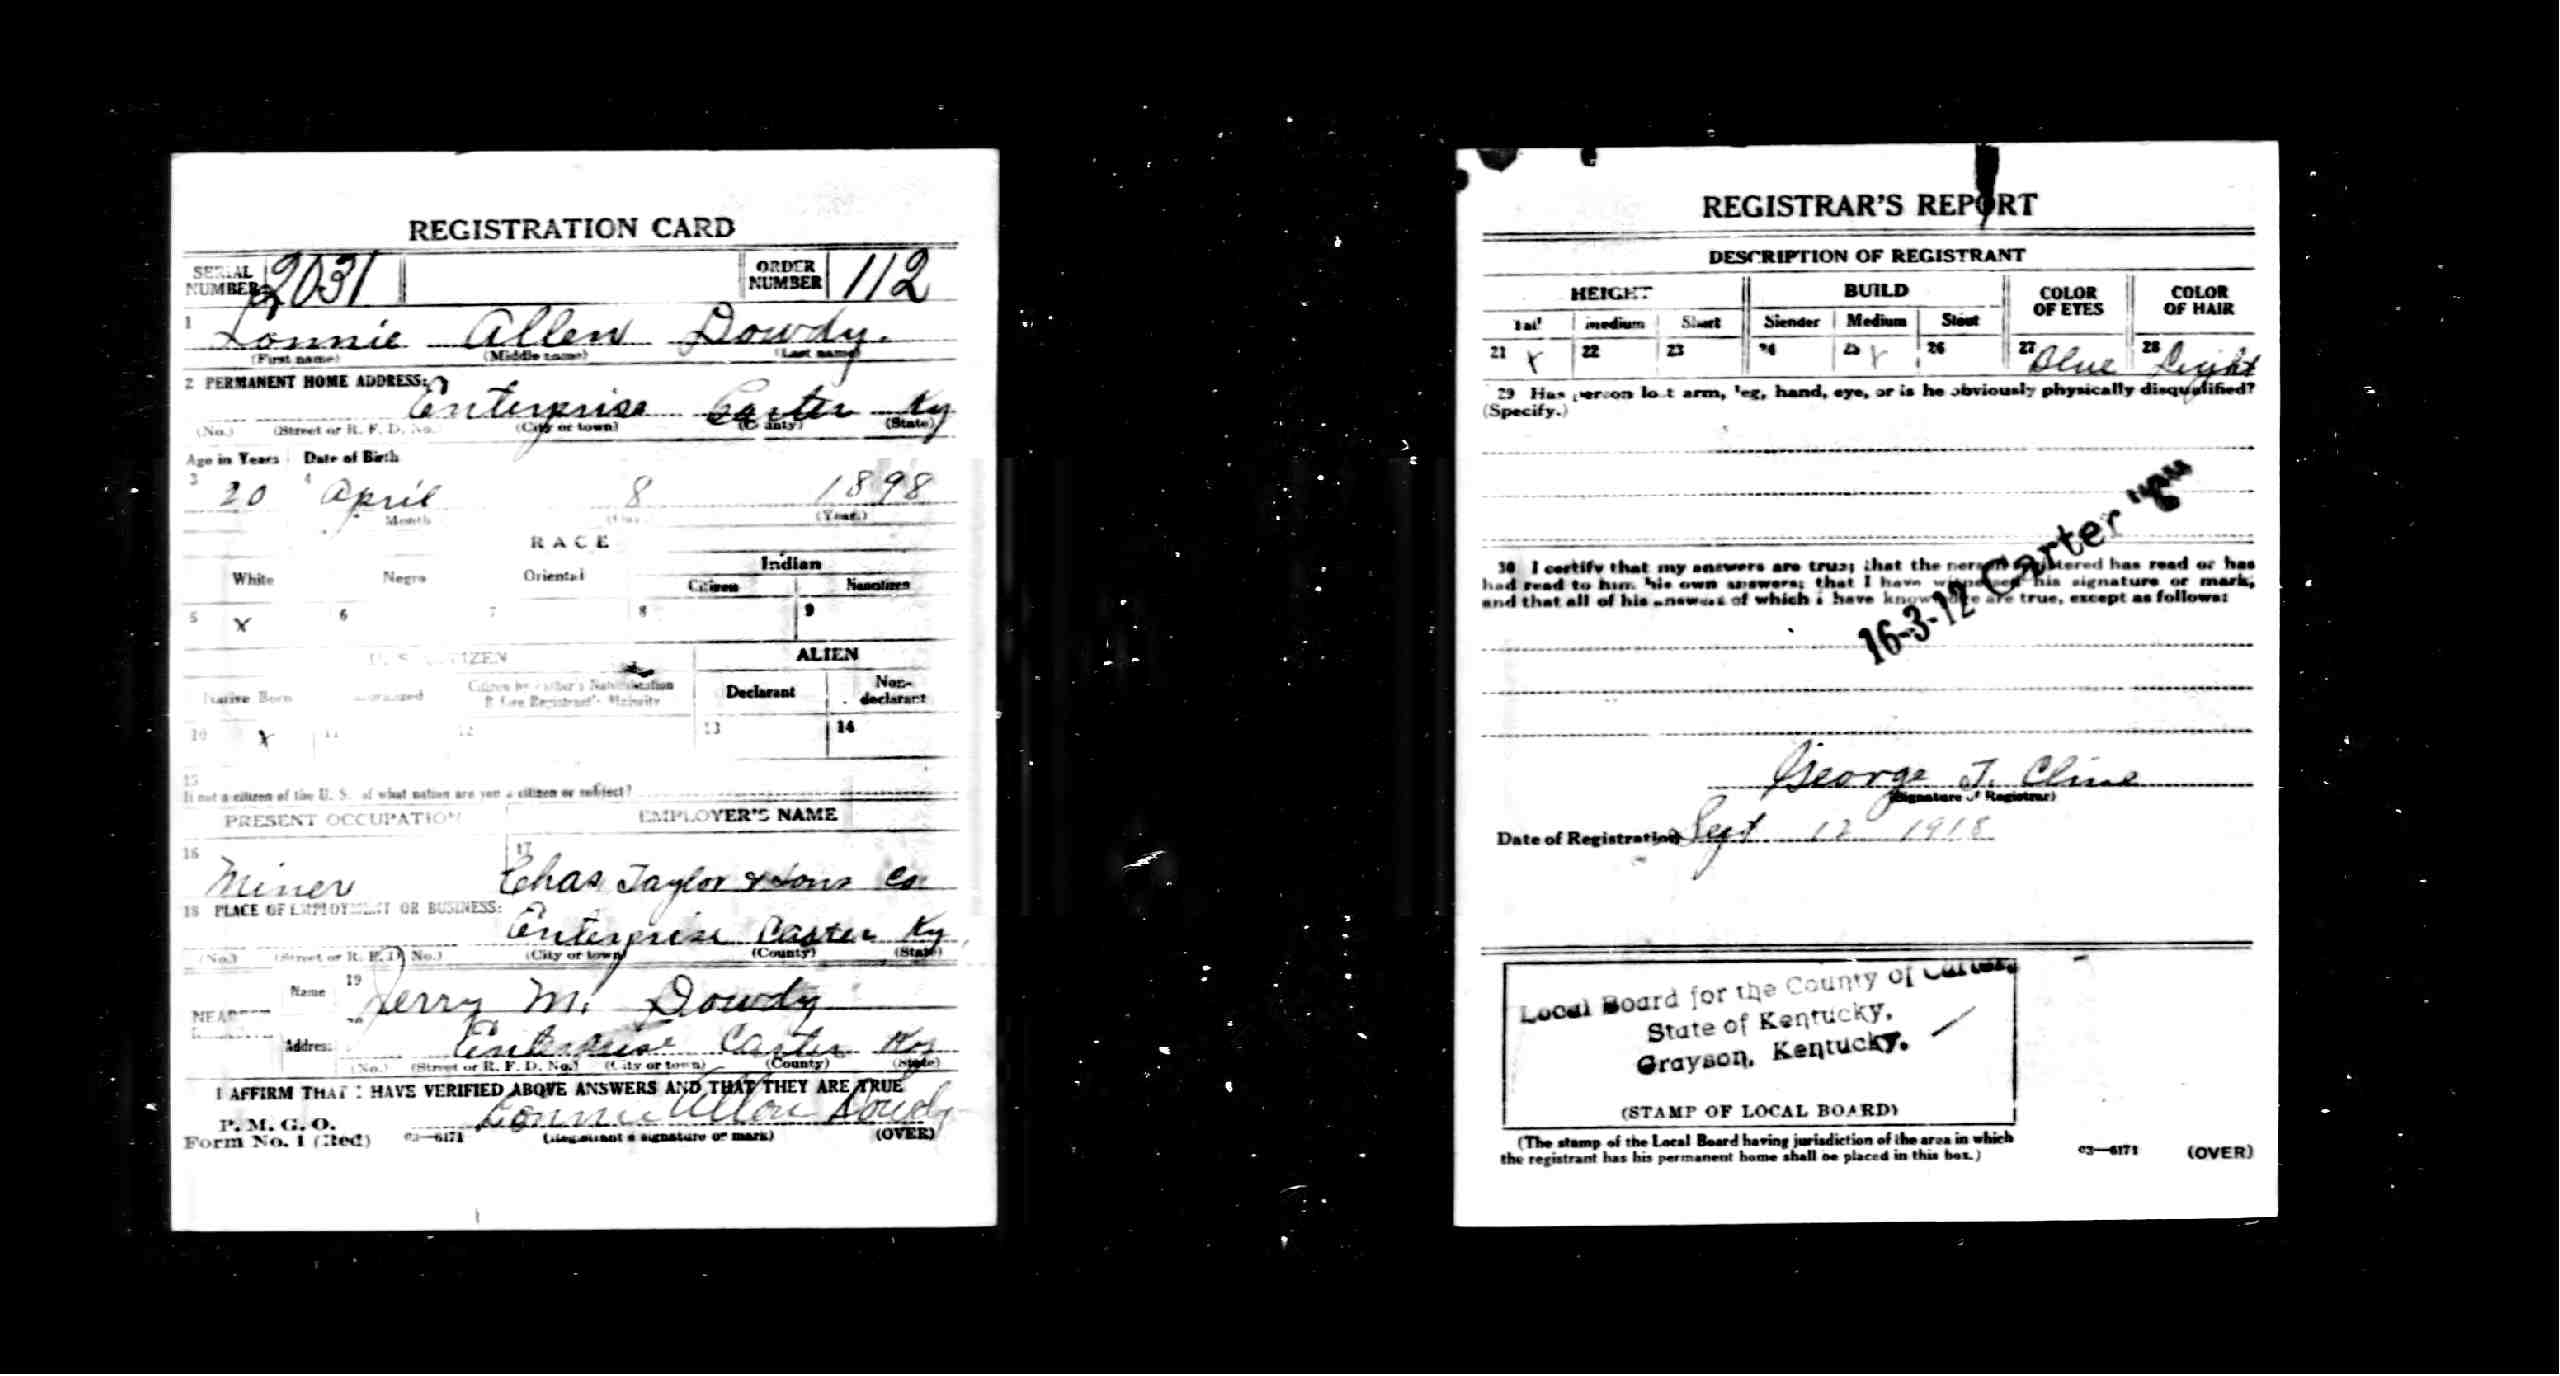 REGISTRATION CARD
SERIAL NUMBER 2031 ORDER NUMBER 112
1 Lonnie Allen Dowdy.
(First name) (Middle name) (Last name)
2 PERMANENT HOME ADDRESS:
Enterprise Carter Ky
(No.) (Street or R. F. D. No.) (City or town) (County) (State)
Age in Years Date of Birth
3 20 4 April 8 1898
Month (Day) (Year)
RACE
White Negro Oriental Indian
Citizen Noncitizen
5 X 6 7 8 9
U. S. CITIZEN ALIEN
Native Born Naturalized Citizen by Father's Naturalization Before Registrant's Majority Declarant Non-declarant
10 X 11 12 13 14
15
If not a citizen of the U. S. of what nation are you a citizen or subject?
PRESENT OCCUPATION EMPLOYER'S NAME
16 Miner 17 Chas Taylor & Sons Co
18 PLACE OF EMPLOYMENT OR BUSINESS:
Enterprise Carter Ky
(No.) (Street or R. F. D. No.) (City or town) (County) (State)
NEAREST Name 19 Jerry M. Dowdy
Address Enterprise Carter Ky
(No.) (Street or R. F. D. No.) (City or town) (County) (State)
I AFFIRM THAT I HAVE VERIFIED ABOVE ANSWERS AND THAT THEY ARE TRUE
P. M. G. O.
Form No. 1 (Red) 03—6171 Lonnie Allen Dowdy
(Registrant's signature or mark) (OVER)
REGISTRAR'S REPORT
DESCRIPTION OF REGISTRANT
HEIGHT BUILD COLOR OF EYES COLOR OF HAIR
Tall medium Short Slender Medium Stout
21 X 22 23 24 25 X 26 27 Blue 28 Light
29 Has person lost arm, leg, hand, eye, or is he obviously physically disqualified?
(Specify.)
30 I certify that my answers are true; that the person registered has read or has
had read to him his own answers; that I have witnessed his signature or mark,
and that all of his answers of which I have knowledge are true, except as follows:
16-3-12 Carter
George T. Cline
(Signature of Registrar)
Date of Registration Sept 12 1918
Local Board for the County of Carter,
State of Kentucky,
Grayson, Kentucky.
(STAMP OF LOCAL BOARD)
(The stamp of the Local Board having jurisdiction of the area in which
the registrant has his permanent home shall be placed in this box.)
03—6171 (OVER)